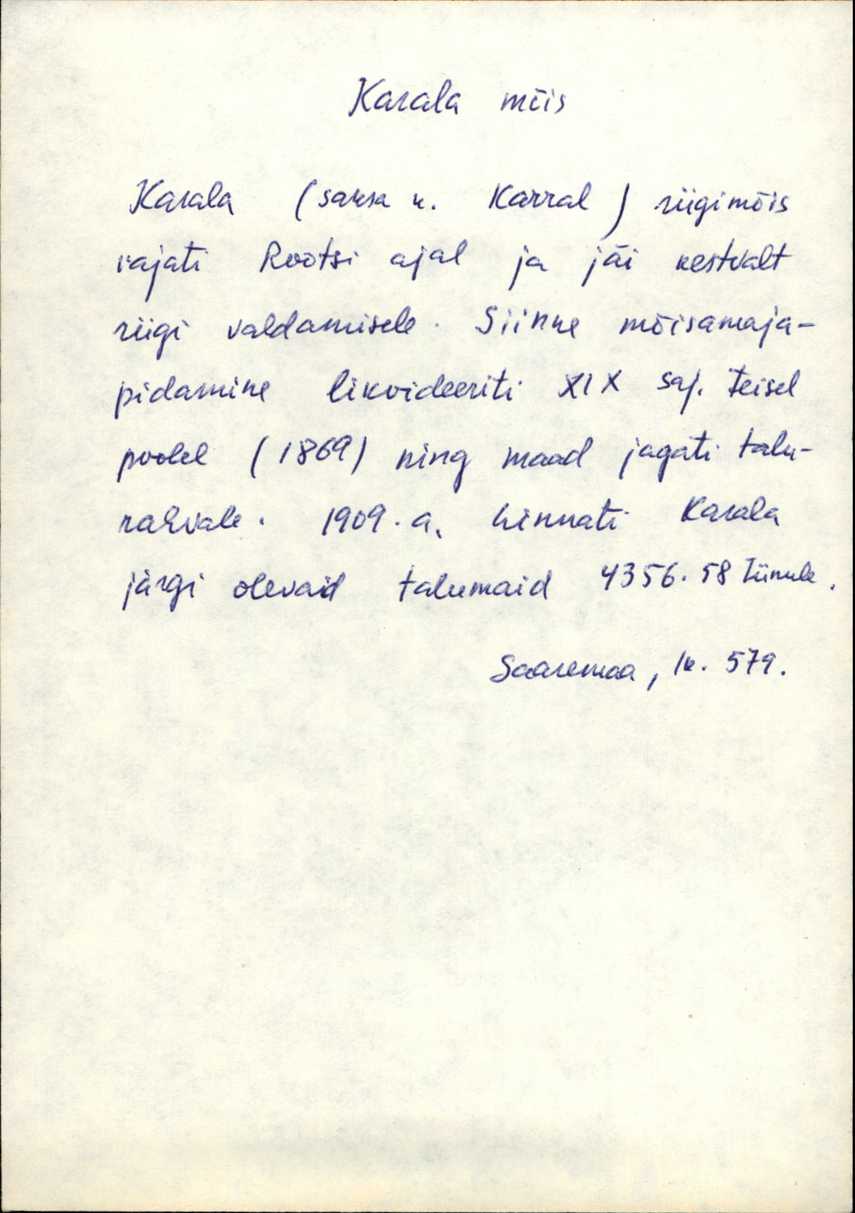 Karala mõis
Karala (saksa k. Karral) riigimõis
rajati Rootsi ajal ja jäi kestvalt
riigi valdamisele. Siinne mõisamaja-
pidamine likvideeriti XIX saj. teisel
poolel (1869) ning maad jagati talu-
rahvale. 1909. a. hinnati Karala
järgi olevaid talumaid 4356.58 tiinule.
Saaremaa, lk. 579.